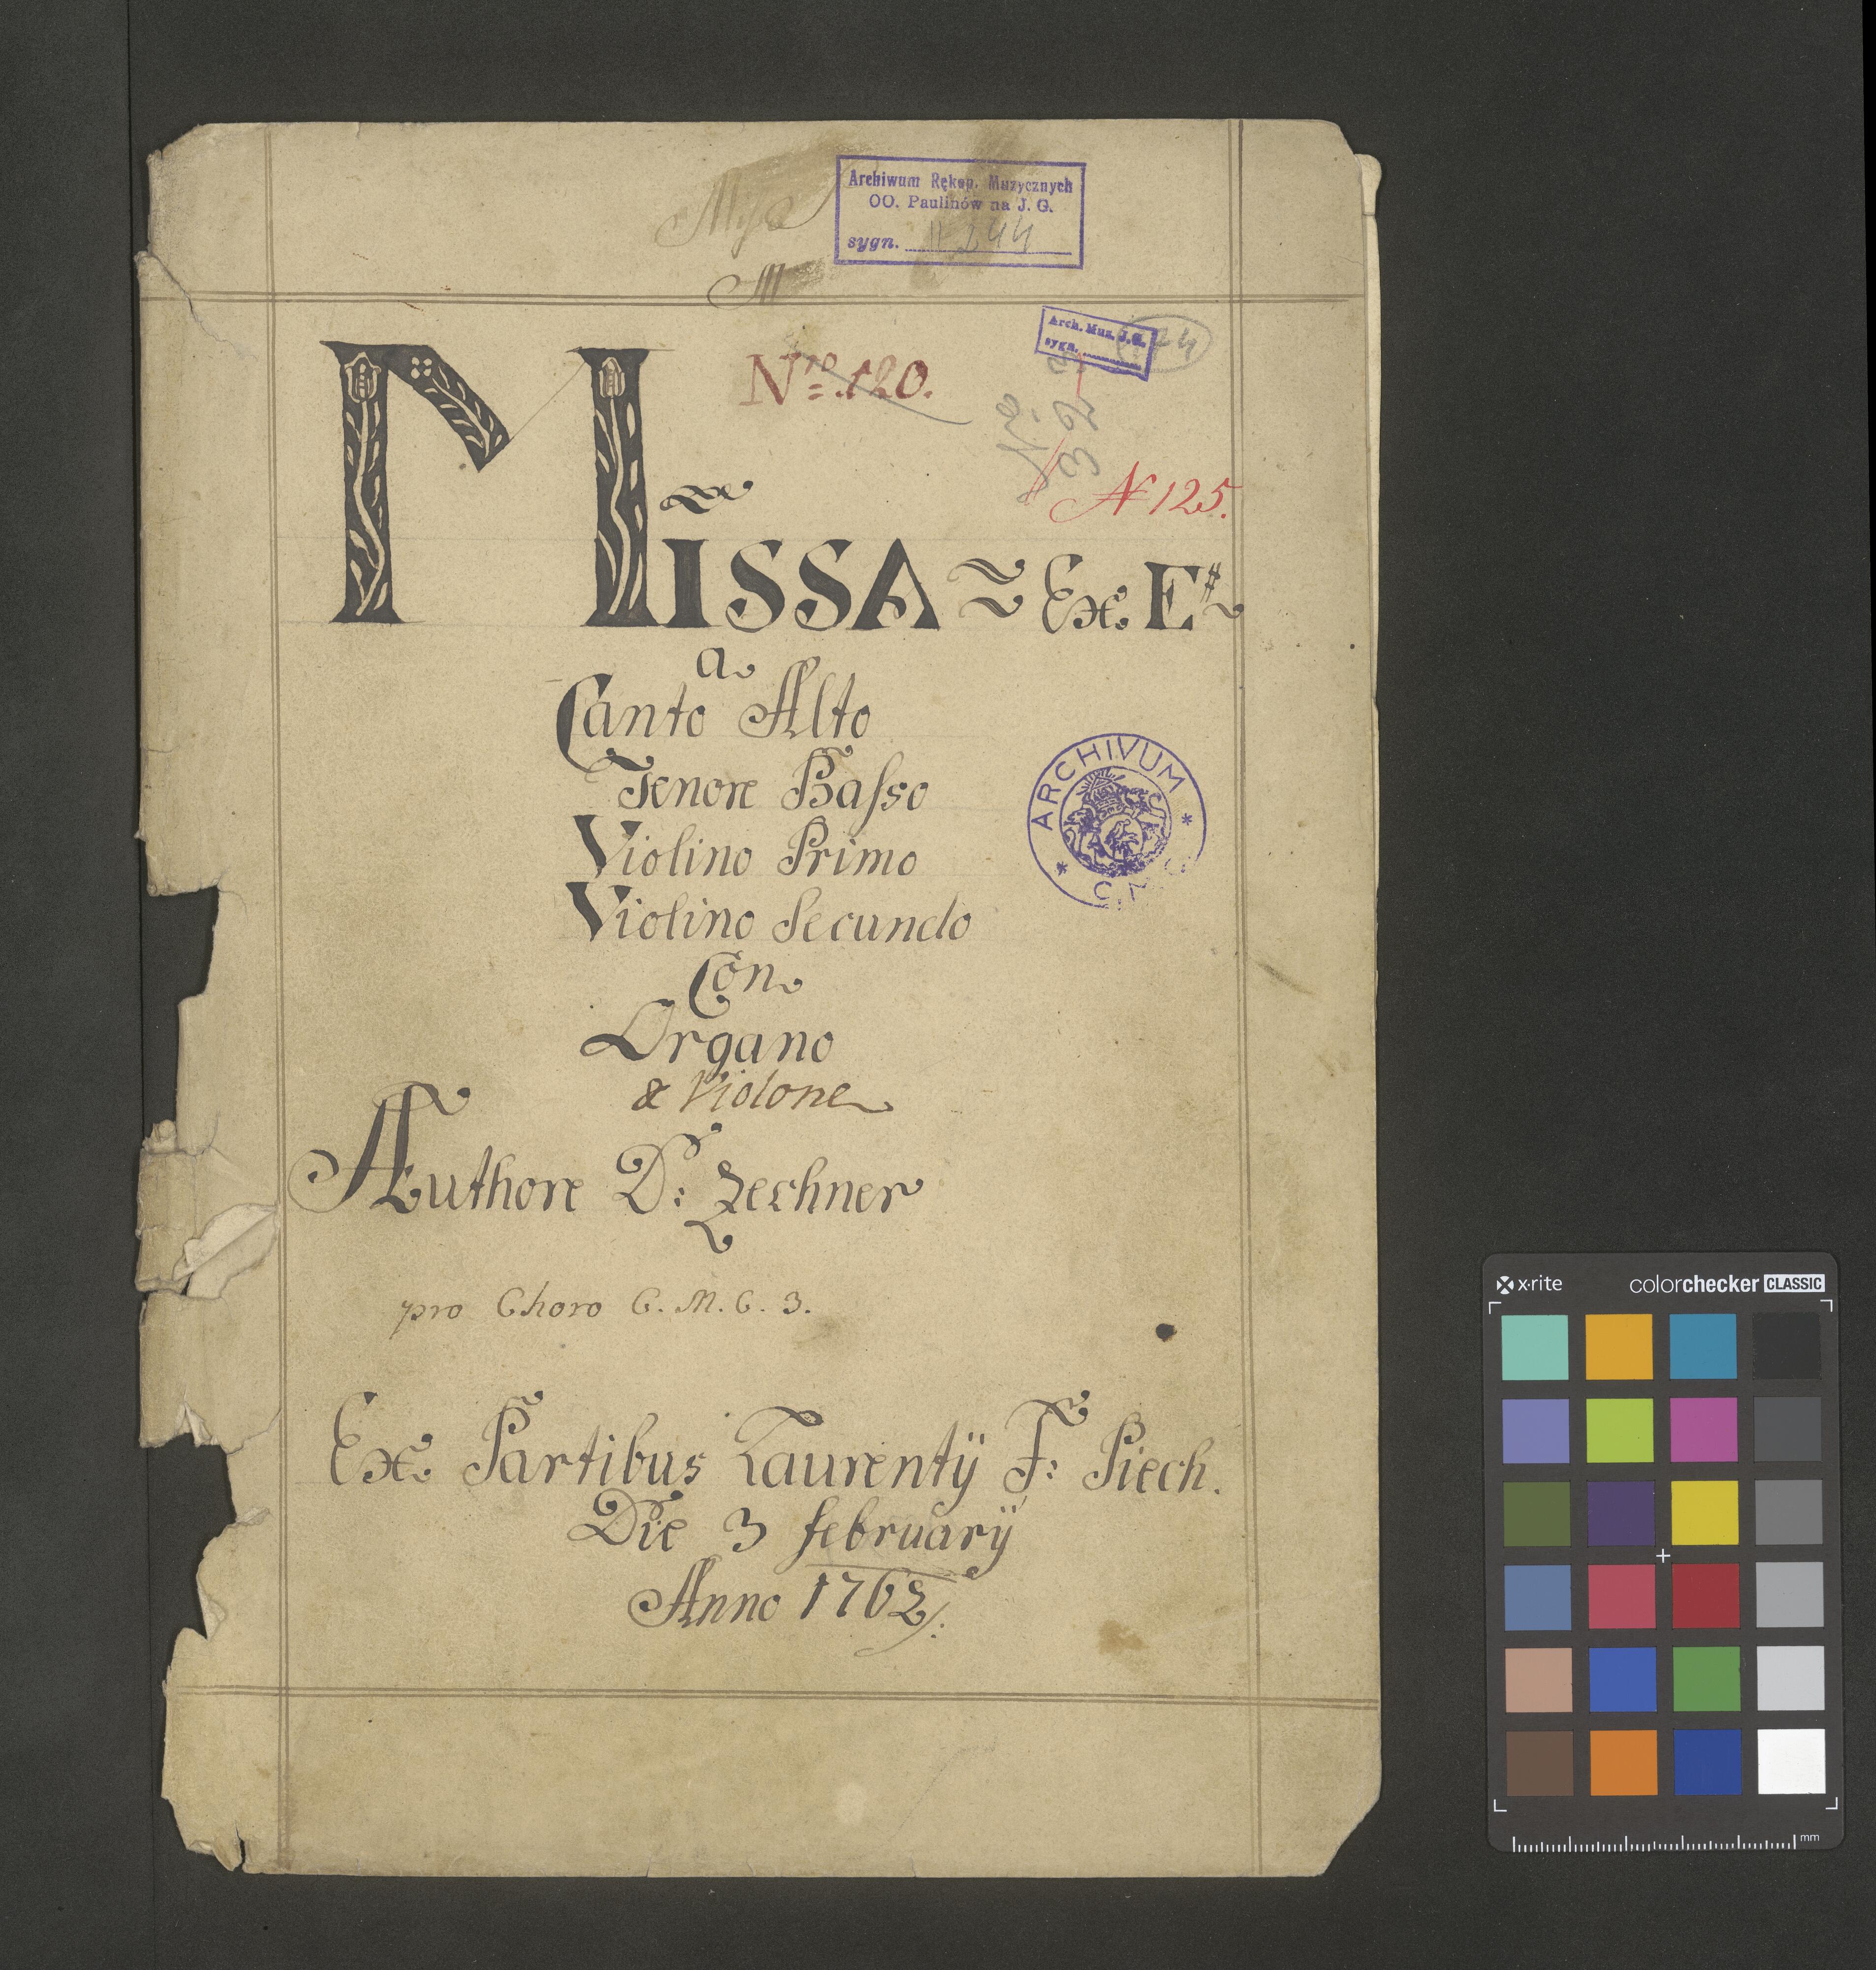 Archiwum Rękop. Muzycznych
OO. Paulinów na J. G.
sygn. 244
Arch. Muz. J. G.
sygn.
Nro. 120.
No. 323
N 125.
MISSA ~ Ex. E♯
a
Canto Alto
Tenore Basso
Violino Primo
Violino Secundo
Con
Organo
& Violone
Authore D: Zechner
pro Choro C. M. C. 3.
Ex Partibus Laurentÿ F: Piech.
Die 3 februarÿ
Anno 1762.
ARCHIVUM
* C. M. *
x·rite
colorchecker CLASSIC
mm